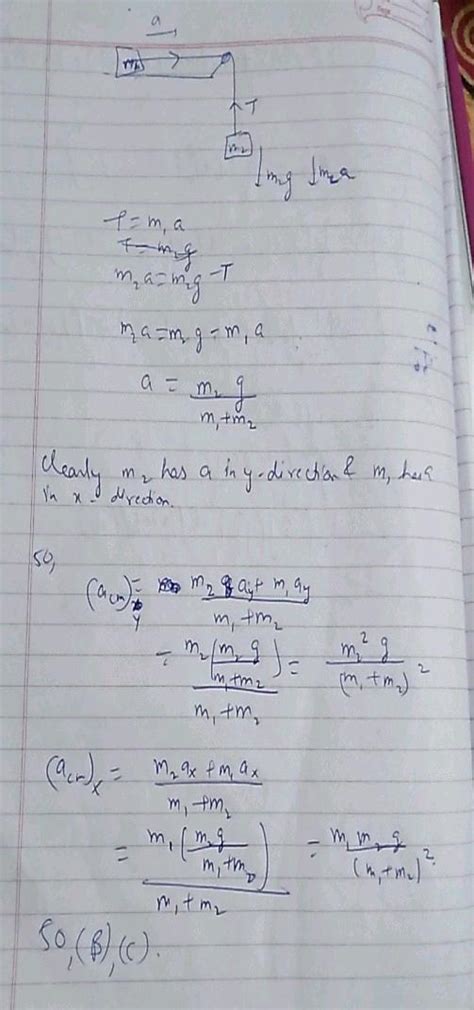 a
m₁
T
m₂
m₂g m₂a
T = m₁a
T = m₂g
m₂a = m₂g - T
m₂a = m₂g = m₁a
a = m₂ g / m₁+m₂
Clearly m₂ has a in y-direction & m₁ has a
in x-direction.
So,
(a_cm)_y = m₂ a_y + m₁ a_y / m₁+m₂
= m₂ (m₂ g / m₁+m₂) / m₁+m₂ = m₂² g / (m₁+m₂)²
(a_cm)_x = m₂ a_x + m₁ a_x / m₁+m₂
= m₁ (m₂g / m₁+m₂) / m₁+m₂ = m₁ m₂ g / (m₁+m₂)²
So, (B), (C).